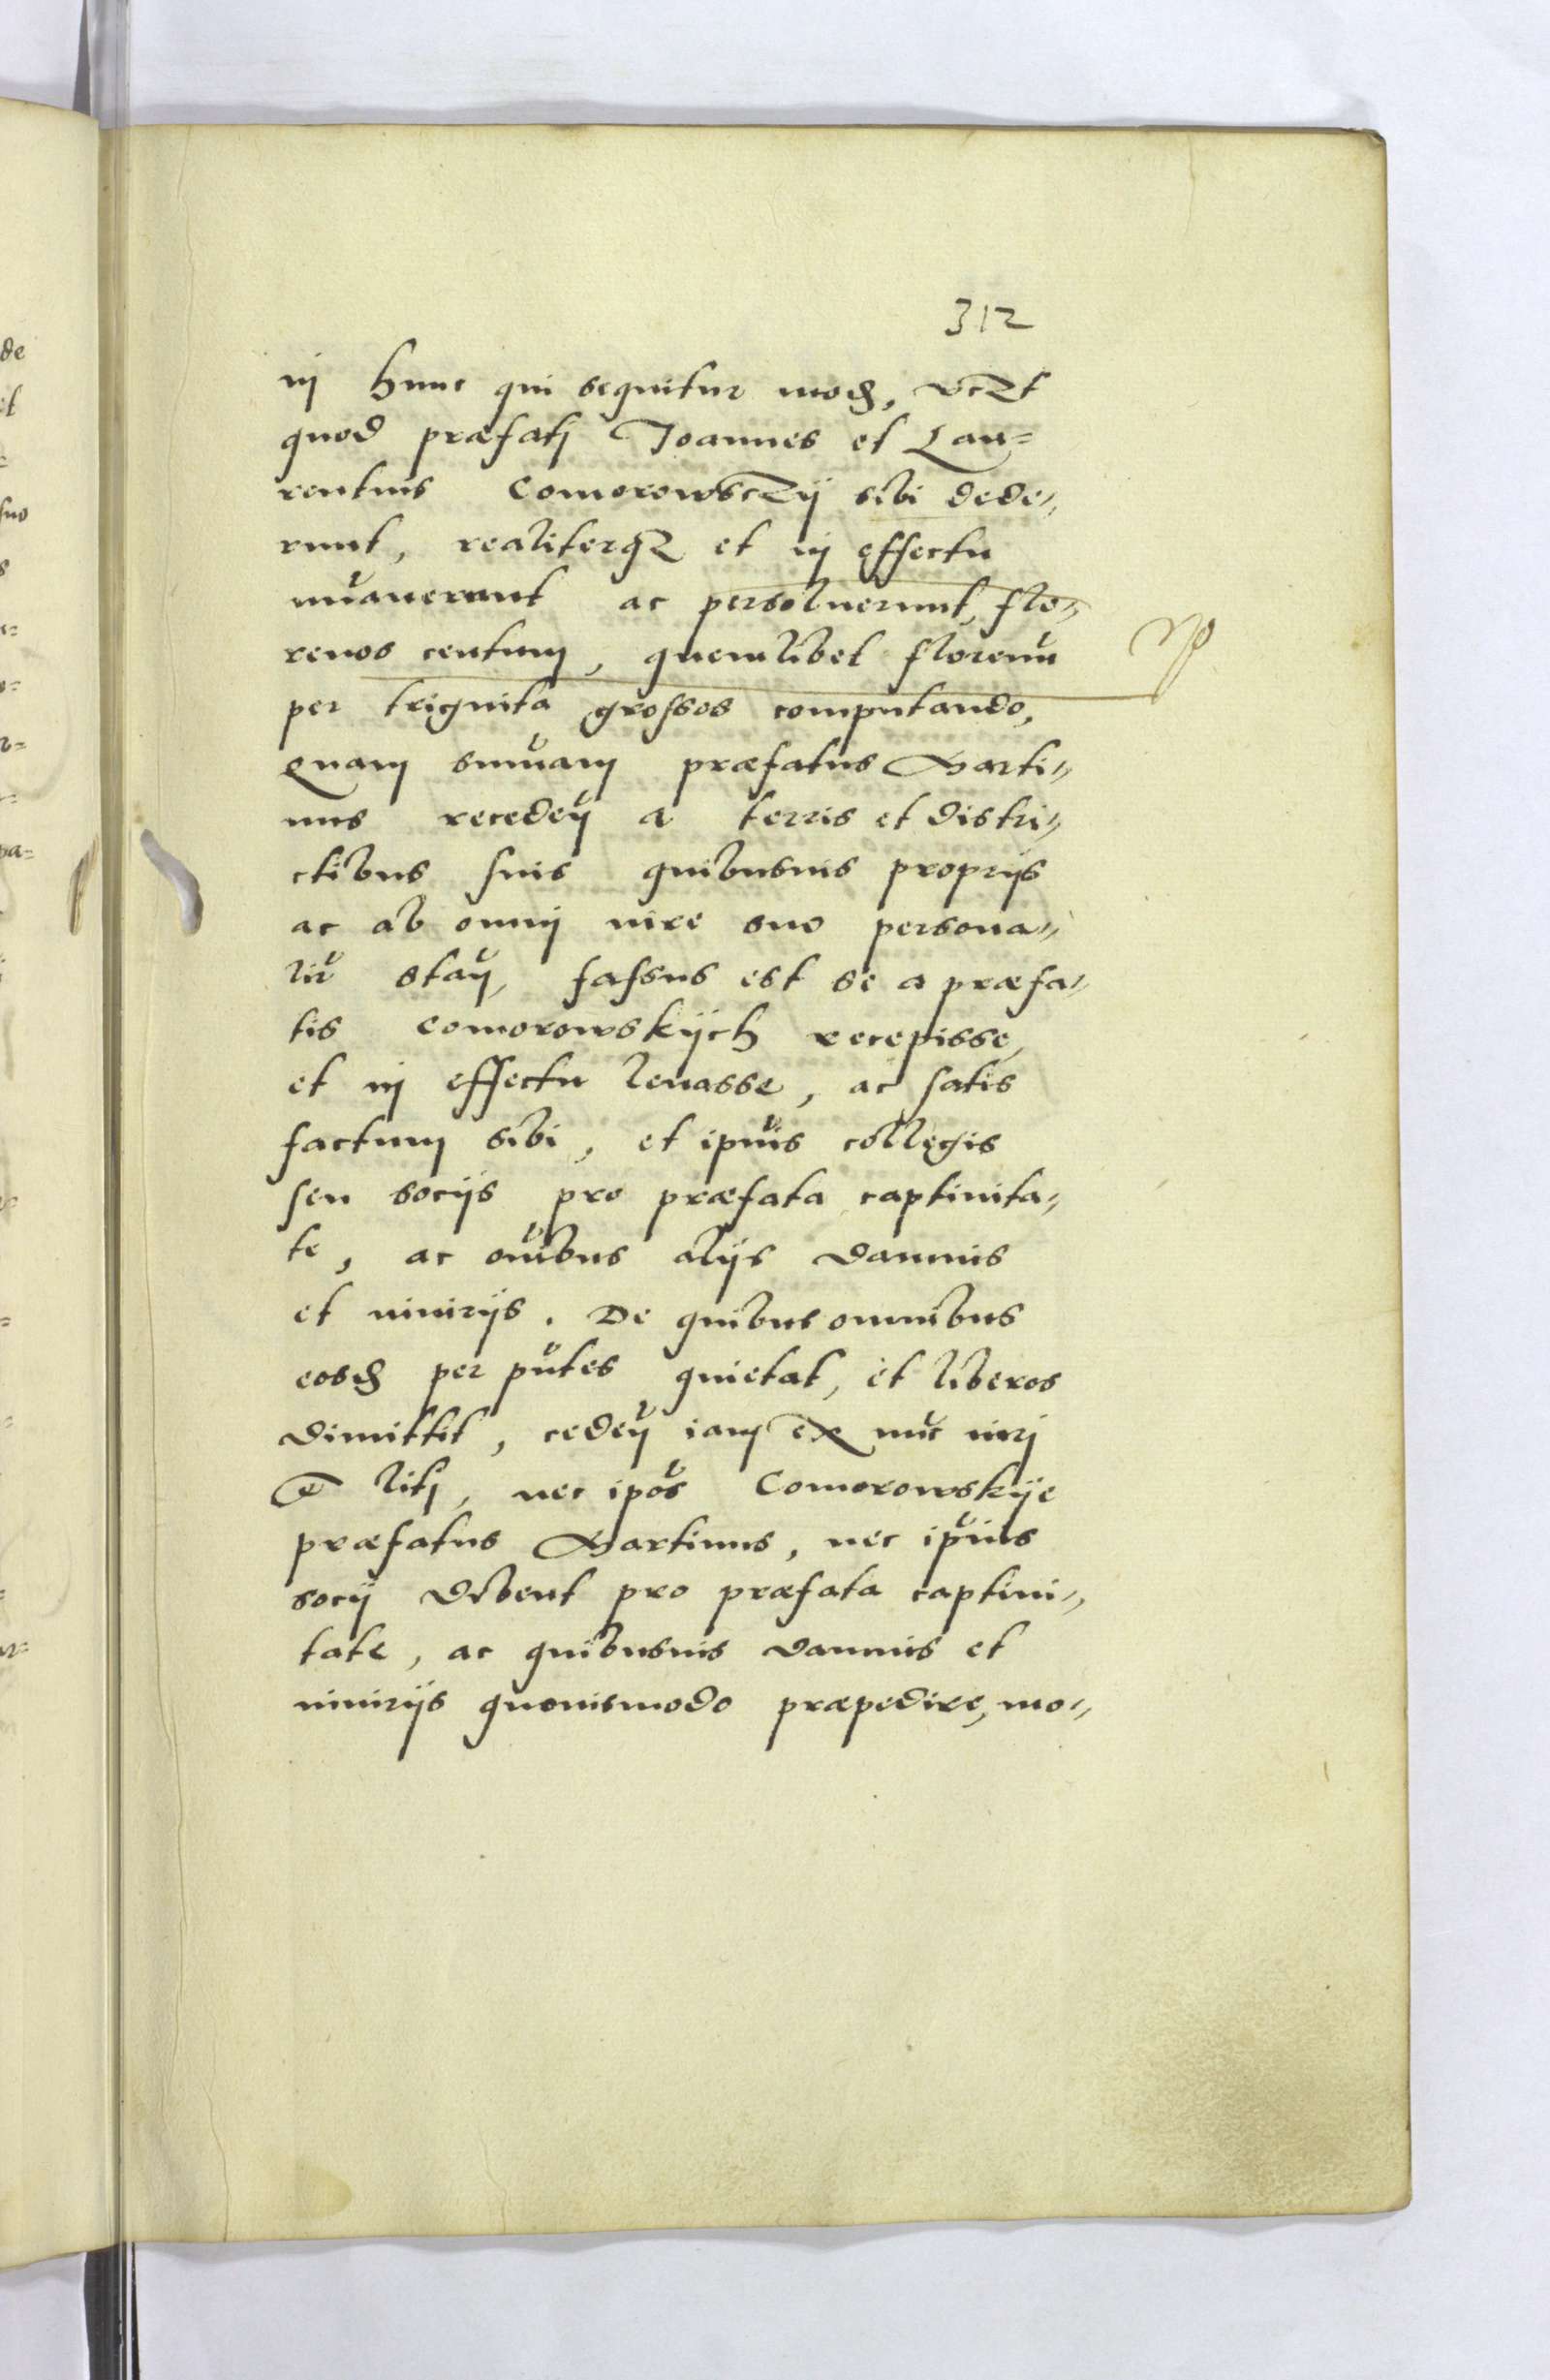 312
in hunc qui sequitur mod, vczt
quod præfati Joannes et Lau=
rentius Comorowsczÿ sibi dede,,
runt, realiterqz et in effectu
nũaverunt ac persoluerunt, flo,,
renos centum, quemlibet florenũ
per triginta grossos computando,
Quam sum̃am præfatus Marti,,
nus recedeñ a terris et distri,,
ctibus suis quibusuis proprijs
ac ab omni iure suo persona,,
lir̃ stañ, fassus est se a præfa,,
tis Comorowskÿch recepisse,
et in effectu leuasse, ac satis
factum sibi, et ipĩus collegis
seu socijs pro præfata captiuita,,
te, ac om̃ibus alijs damnis
et iniurijs. De quibus omnibus
eosd per pñtes quietat, et liberos
dimittit, cedeñ iam ex nũc iuri
et liti, nec ipõs Comorowskÿe
præfatus Martinus, nec ipĩus
socij debent pro præfata captiui,,
tate, ac quibusuis damnis et
iniurijs quouismodo præpedire, mo,,